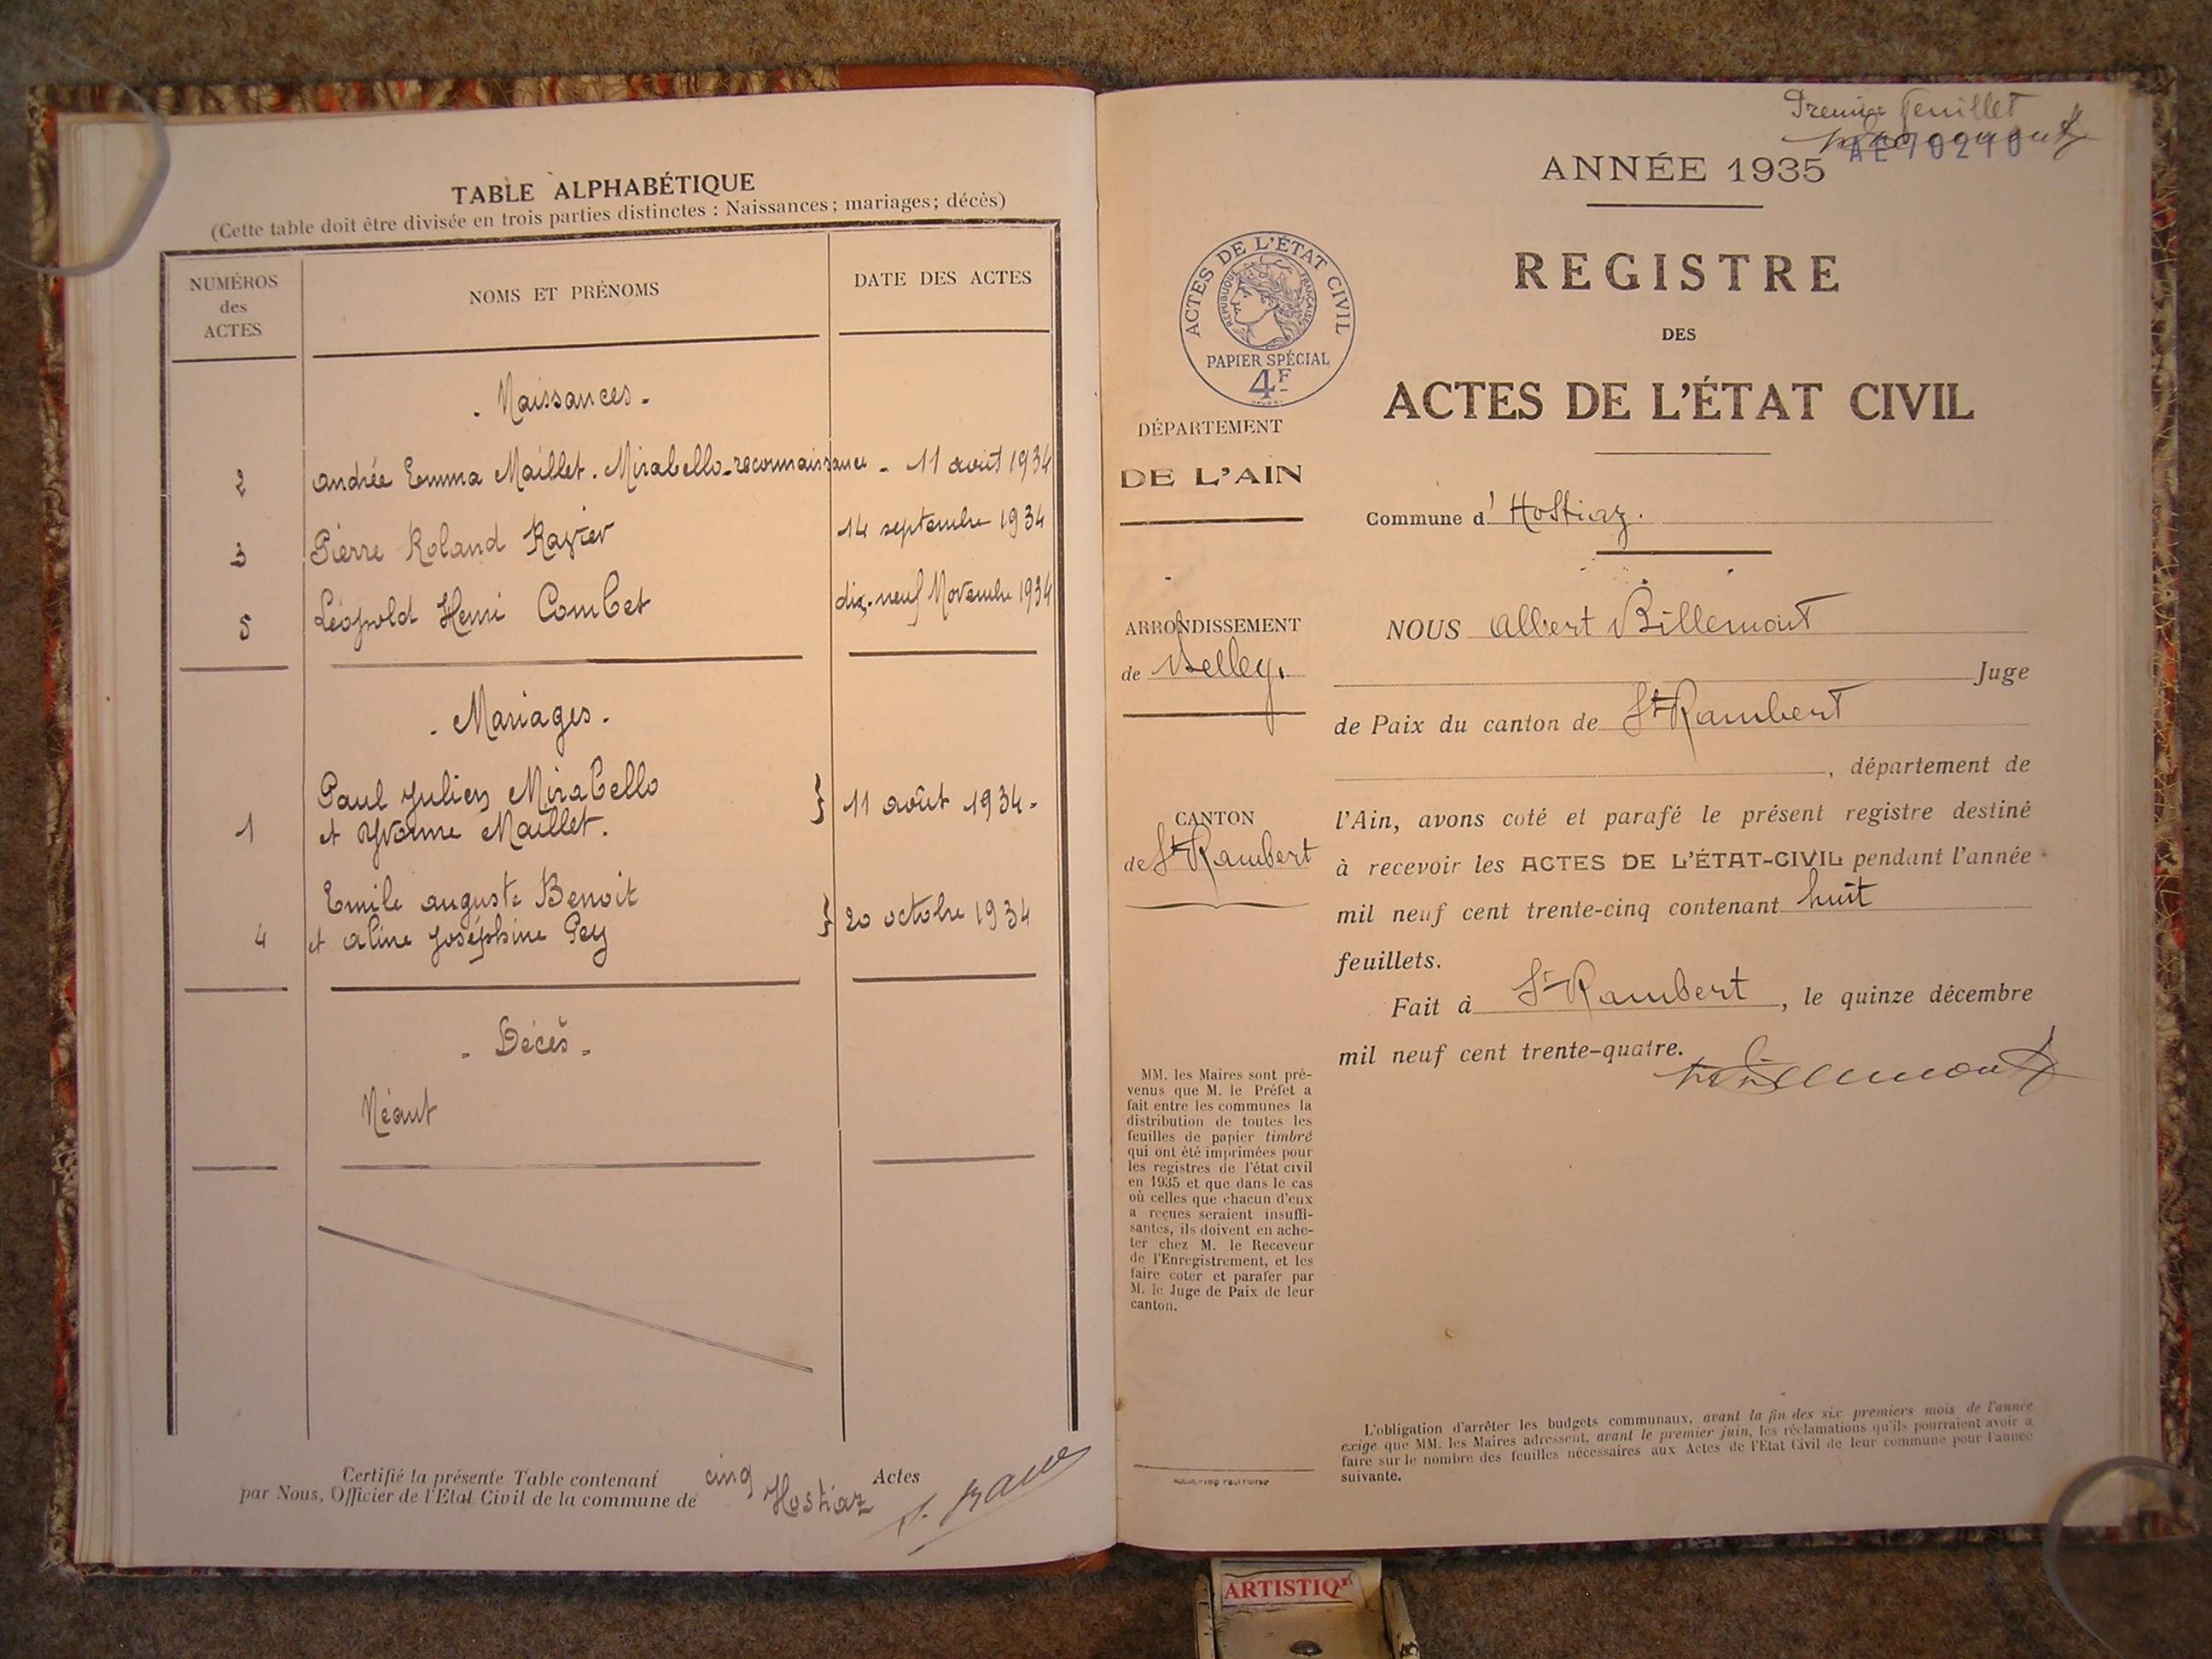 TABLE ALPHABÉTIQUE
(Cette table doit être divisée en trois parties distinctes : Naissances ; mariages ; décès)
NUMÉROS des ACTES
NOMS ET PRÉNOMS
DATE DES ACTES
- Naissances -
2 Andrée Emma Maillet. Mirabello-reconnaissance - 11 août 1934
3 Pierre Roland Ravier 14 septembre 1934
5 Léopold Henri Combet dix-neuf Novembre 1934
- Mariages -
Paul Julien Mirabello
1 et Yvonne Maillet. } 11 août 1934 -
Emile auguste Benoit
4 et aline Joséphine Pey } 20 octobre 1934
- Décès -
Néant
Certifié la présente Table contenant cinq Actes
par Nous, Officier de l'Etat Civil de la commune de Hostiaz
Premier feuillet
ANNÉE 1935
REGISTRE
DES
ACTES DE L'ÉTAT CIVIL
ACTES DE L'ÉTAT CIVIL
RÉPUBLIQUE FRANÇAISE
PAPIER SPÉCIAL
4F
DÉPARTEMENT
DE L'AIN
Commune d'Hostiaz.
ARRONDISSEMENT
de Belley.
CANTON
de St Rambert
NOUS Albert Billemont
Juge
de Paix du canton de St Rambert
, département de
l'Ain, avons coté et parafé le présent registre destiné
à recevoir les ACTES DE L'ÉTAT-CIVIL pendant l'année
mil neuf cent trente-cinq contenant huit
feuillets.
Fait à St Rambert, le quinze décembre
mil neuf cent trente-quatre.
Billemont
MM. les Maires sont pré-
venus que M. le Préfet a
fait entre les communes la
distribution de toutes les
feuilles de papier timbré
qui ont été imprimées pour
les registres de l'état civil
en 1935 et que dans le cas
où celles que chacun d'eux
a reçues seraient insuffi-
santes, ils doivent en ache-
ter chez M. le Receveur
de l'Enregistrement, et les
faire coter et parafer par
M. le Juge de Paix de leur
canton.
L'obligation d'arrêter les budgets communaux, avant la fin des six premiers mois de l'année
exige que MM. les Maires adressent, avant le premier juin, les réclamations qu'ils pourraient avoir à
faire sur le nombre des feuilles nécessaires aux Actes de l'Etat Civil de leur commune pour l'année
suivante.
ARTISTIQ